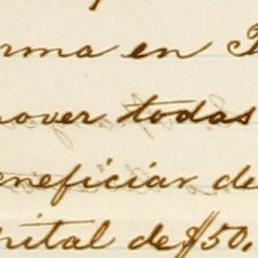 orma en P
mover todas
eneficiar de
pital de $50.